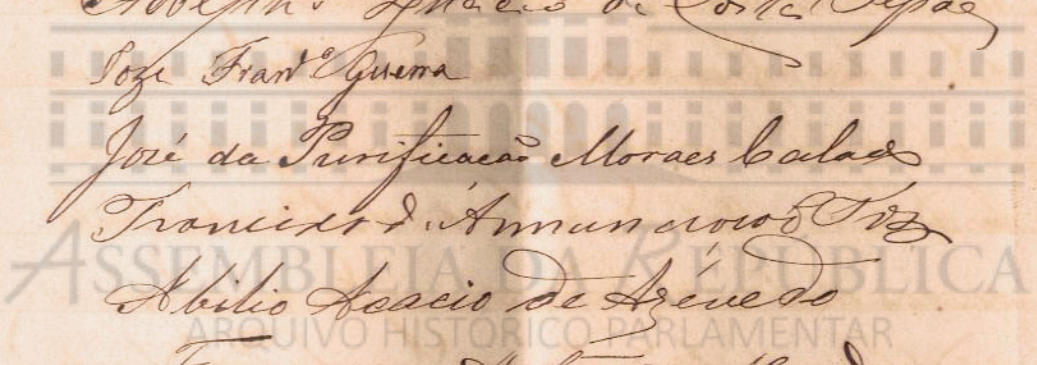 Ignacio da Costa
Joze Fran^co Guerra
José da Purificacão Moraes Calado
Francisco d'Annunciação
Abilio Acacio de Azévedo
ASSEMBLEIA DA REPÚBLICA
ARQUIVO HISTÓRICO PARLAMENTAR